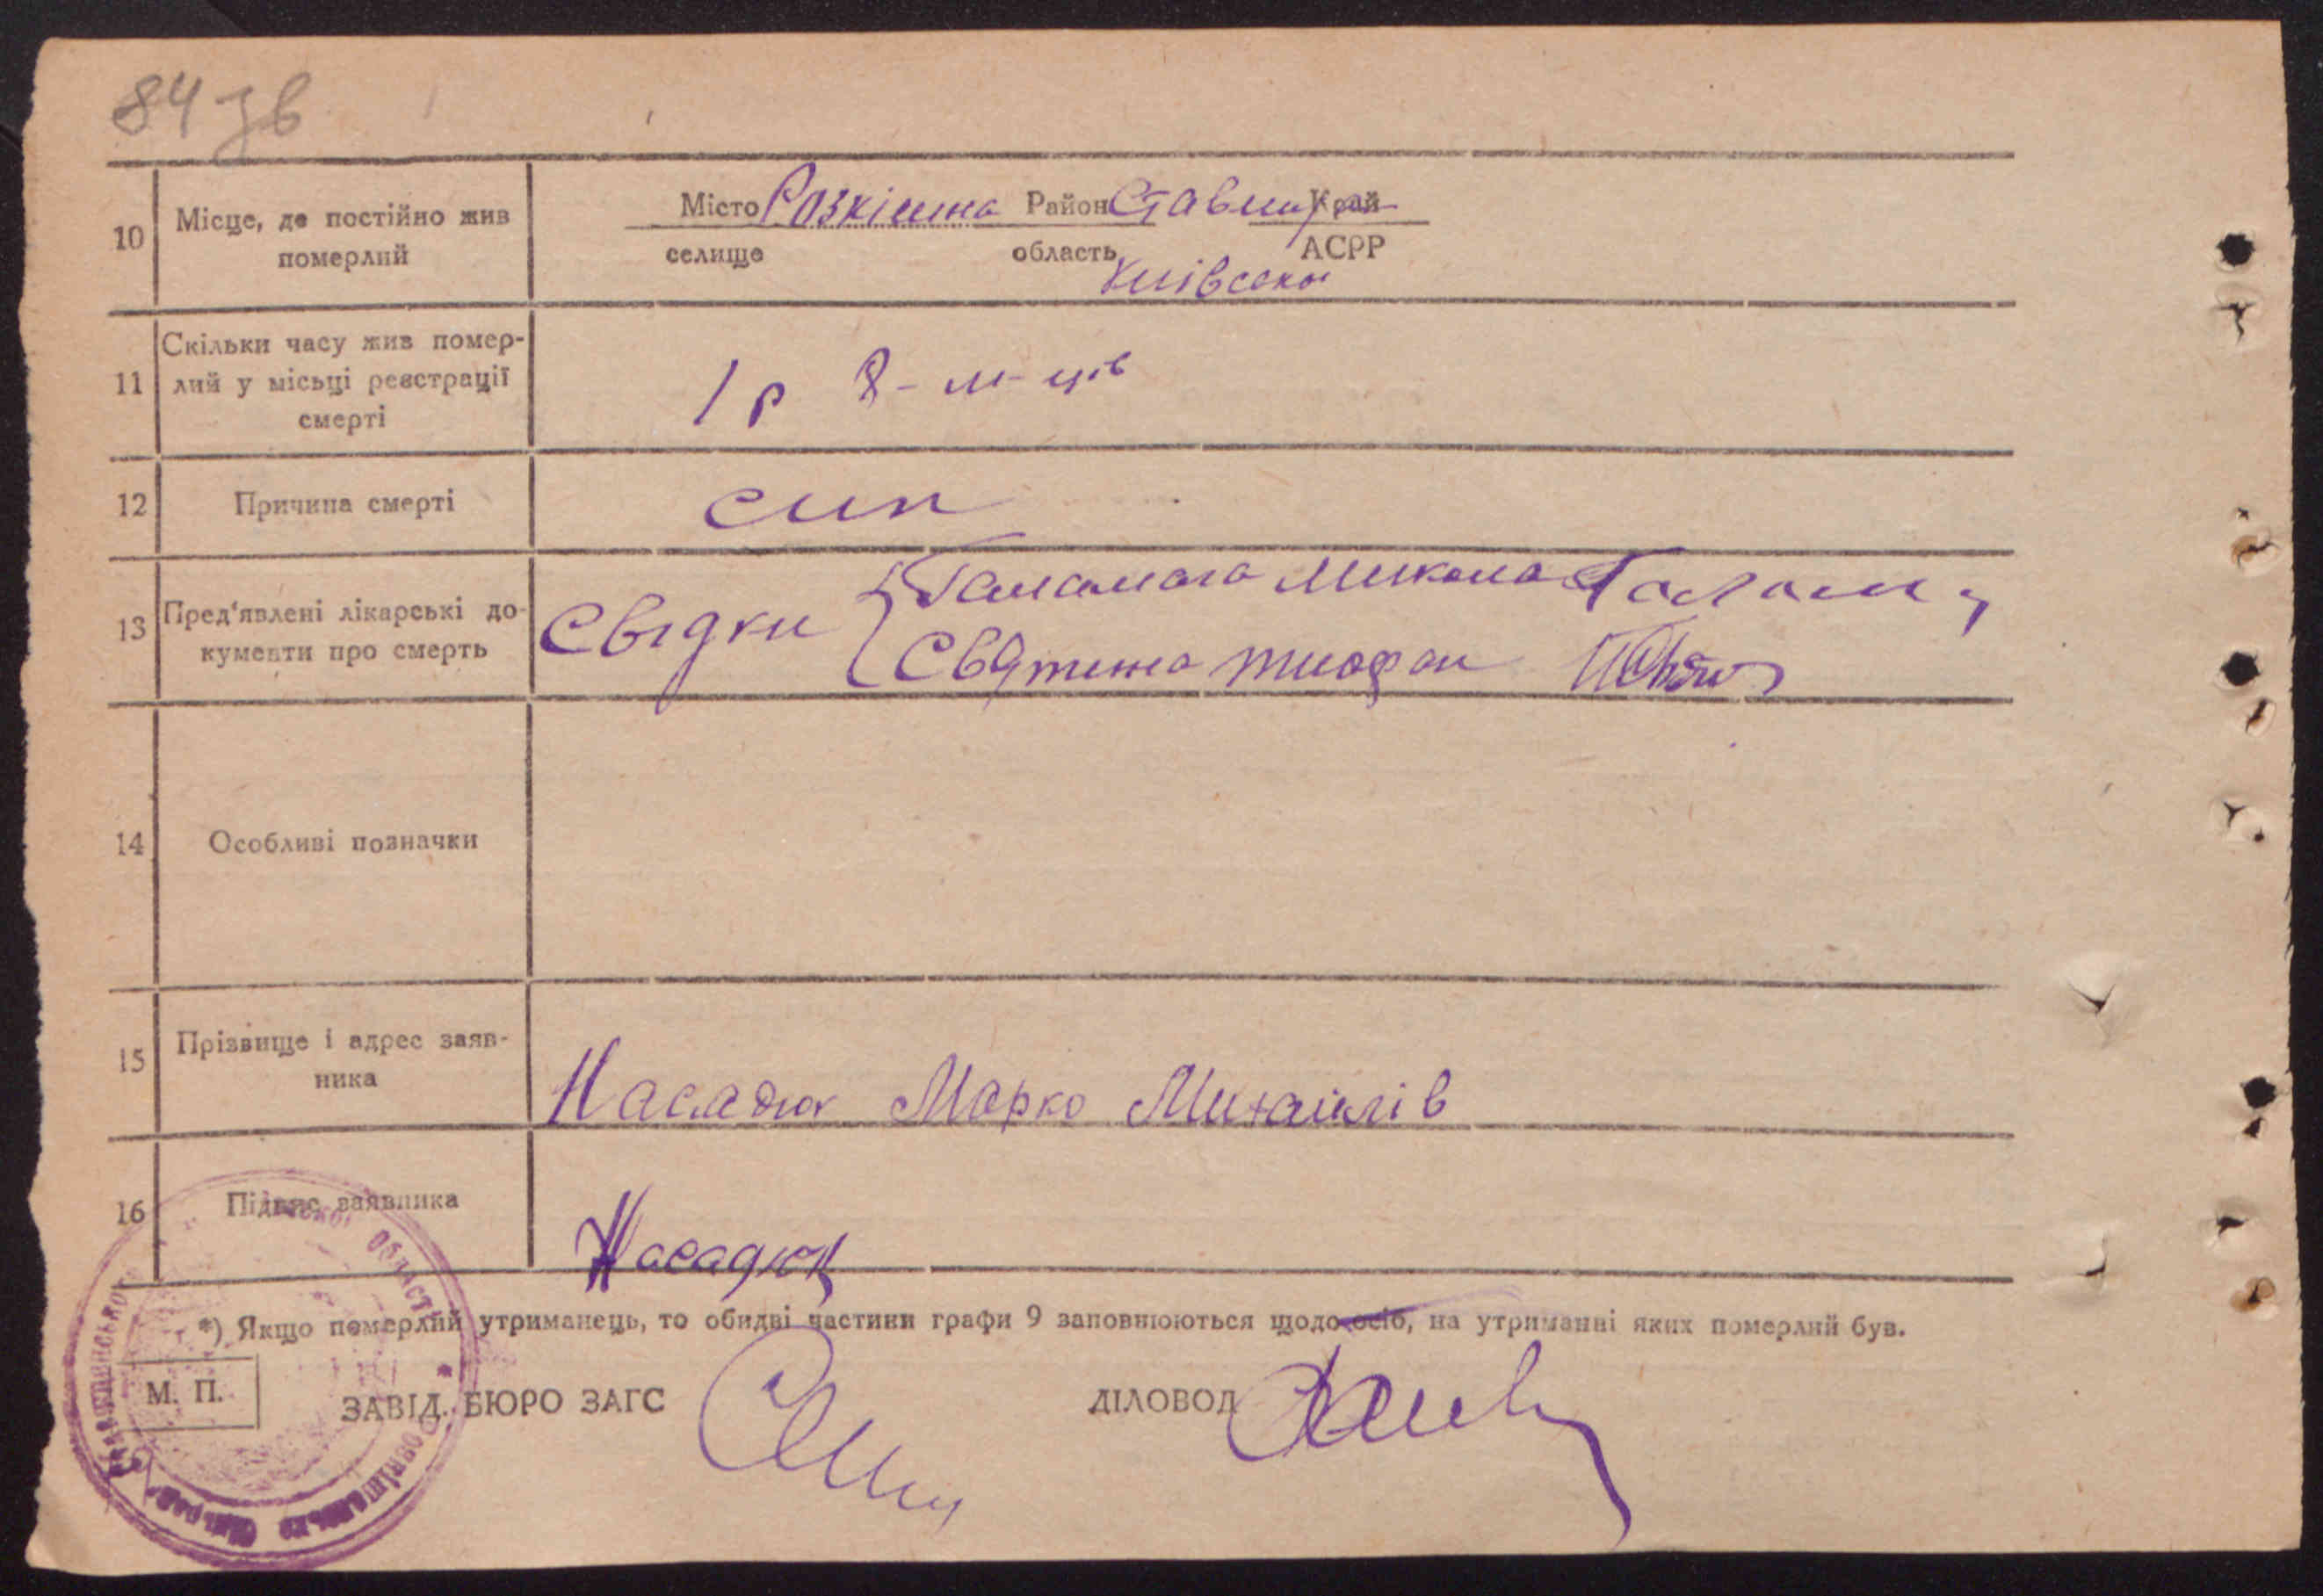 84 зв
10 Місце, де постійно жив померлий
Місто Розкішна Район Ставищ Край
селище область АСРР
Київська
11 Скільки часу жив помер-
лий у місьці реєстрації
смерті
1 р 8 - м-ців
12 Причина смерті
сип
13 Пред'явлені лікарські до-
кументи про смерть
Свідки Микола
Святина Тиофан
14 Особливі позначки
15 Прізвище і адрес заяв-
ника
Насадюк Марко Михайлів
16 Підпис заявника
Насадюк
*) Якщо померлий утриманець, то обидві частини графи 9 заповнюються щодо осіб, на утриманні яких померлий був.
М. П.
ЗАВІД. БЮРО ЗАГС
ДІЛОВОД